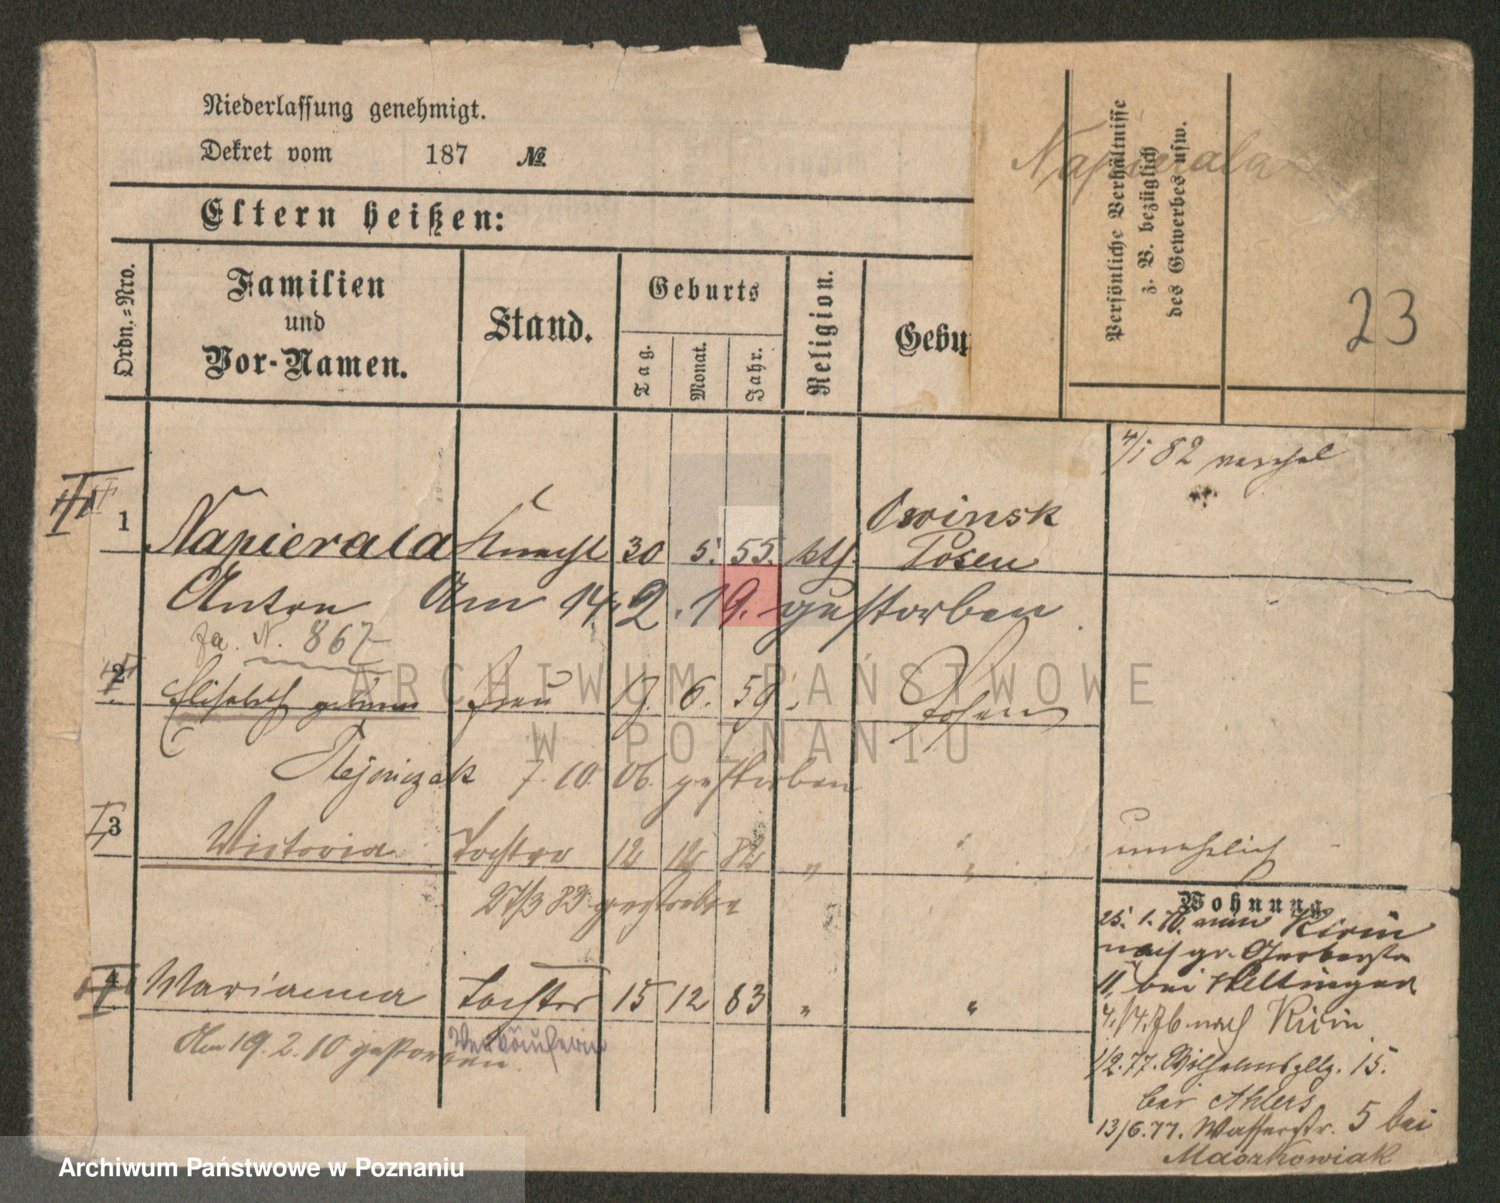 Niederlassung genehmigt.
Dekret vom 187 №
Eltern heißen:
Ordn.-Nro.
Familien
und
Vor-Namen.
Stand.
Geburts
Tag.
Monat.
Jahr.
Religion.
Gebu
Persönliche Verhältnisse
z. B. bezüglich
des Gewerbes usw.
Napierala
23
4/1 82
1 Napierala Knecht 30 5. 55. kth. Owinsk
Posen
Anton Am 14. 2. 19. gestorben
N. 867
2 Elisabeth geborne Frau 17. 6. 59 Posen
7. 10. 06. gestorben
3 Victoria Tochter 12 12 82 " "
27/3 83 gestorben
unehelich
4 Marianna Tochter 15 12 83 " "
Am 19. 2. 10 gestorben
Verkäuferin
Wohnung
25. 1. 76. nach gr. Gerberstr
11, bei
4./4. 76 nach
1/2. 77. Wilhelmspltz. 15.
bei Ahlers
13/6. 77. Wasserstr. 5 bei
Maczkowiak
ARCHIWUM PAŃSTWOWE
W POZNANIU
Archiwum Państwowe w Poznaniu